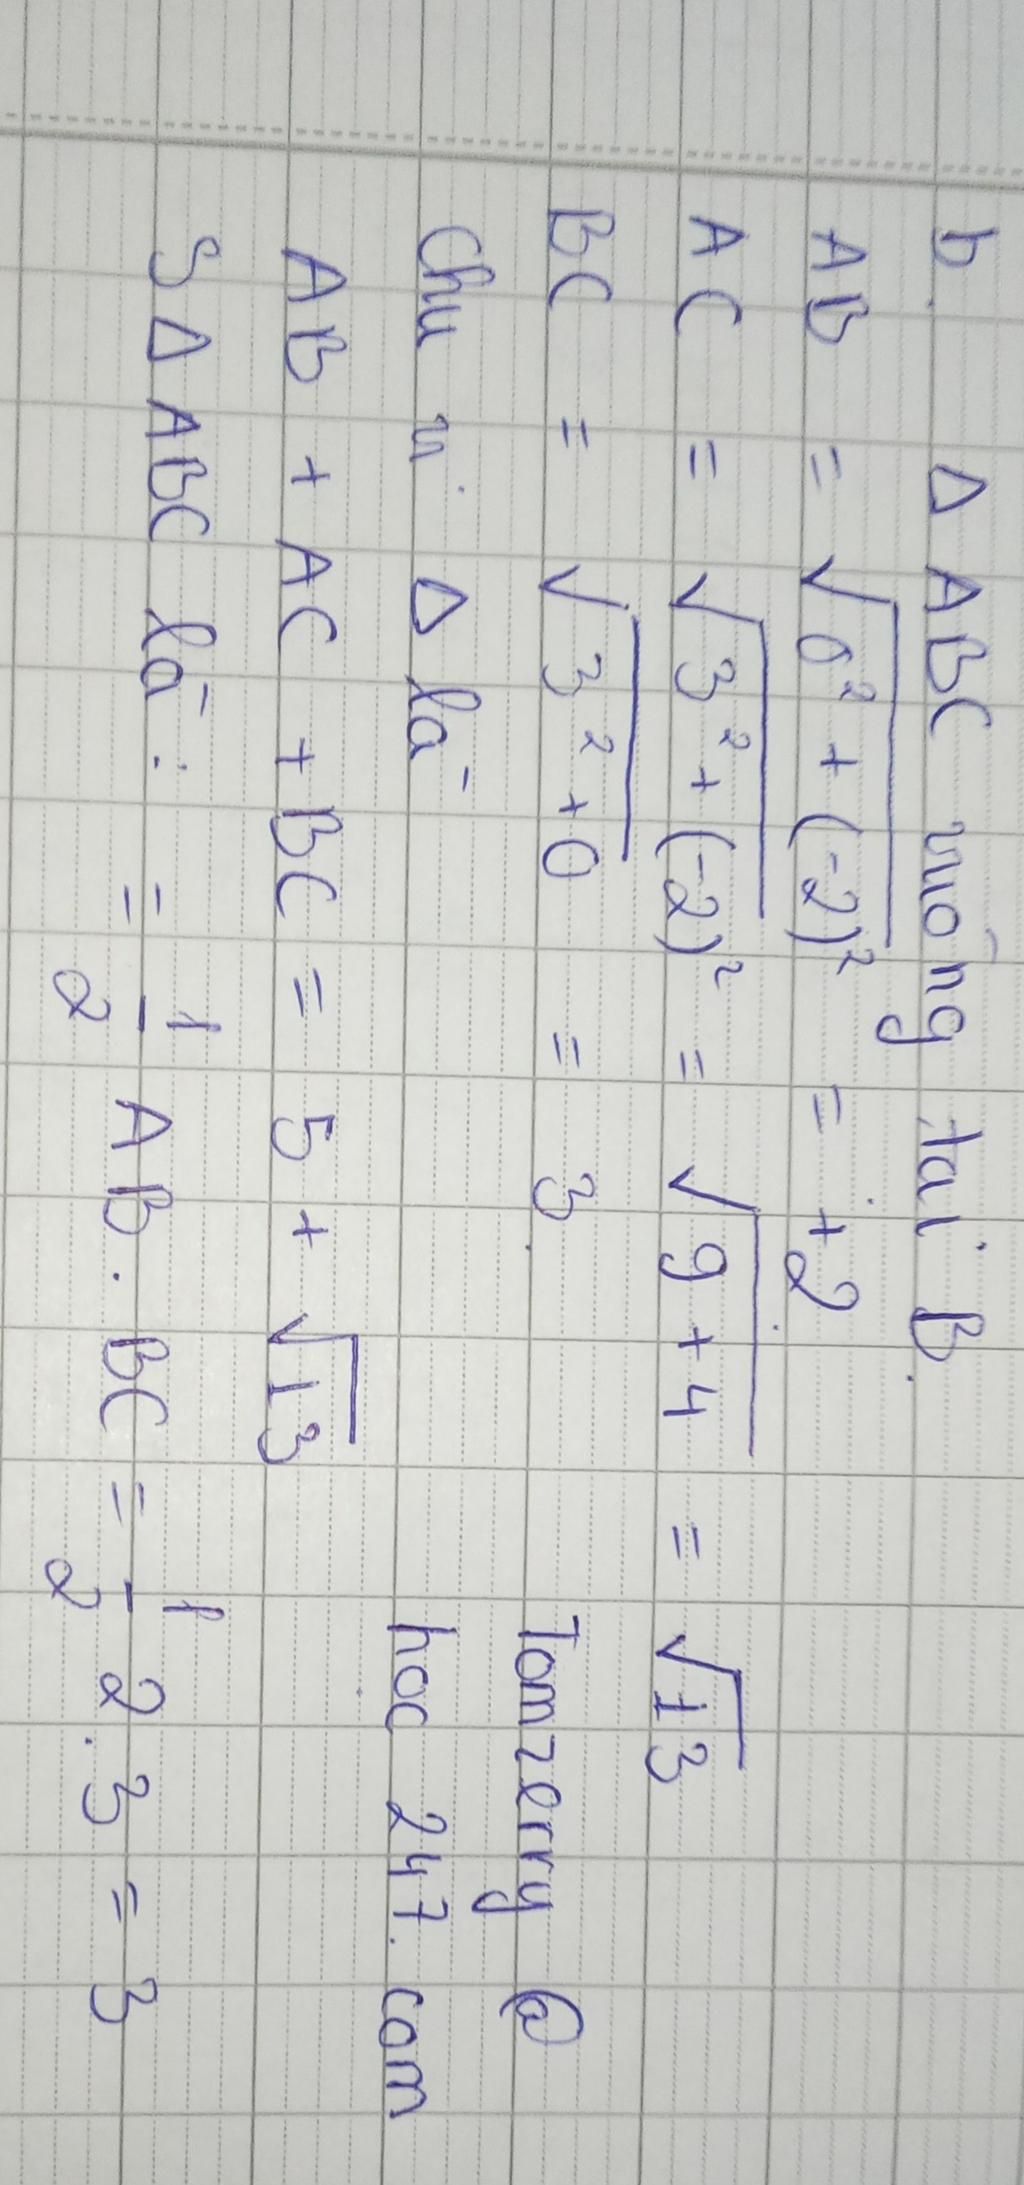 b. Δ ABC vuông tại B.
AB = √0² + (-2)² = +2
AC = √3² + (-2)² = √9 + 4 = √13
BC = √3² + 0 = 3
Tomzerry @
Chu vi Δ là
hoc 247. com
AB + AC + BC = 5 + √13
S Δ ABC là : = 1/2 AB . BC = 1/2 2 . 3 = 3